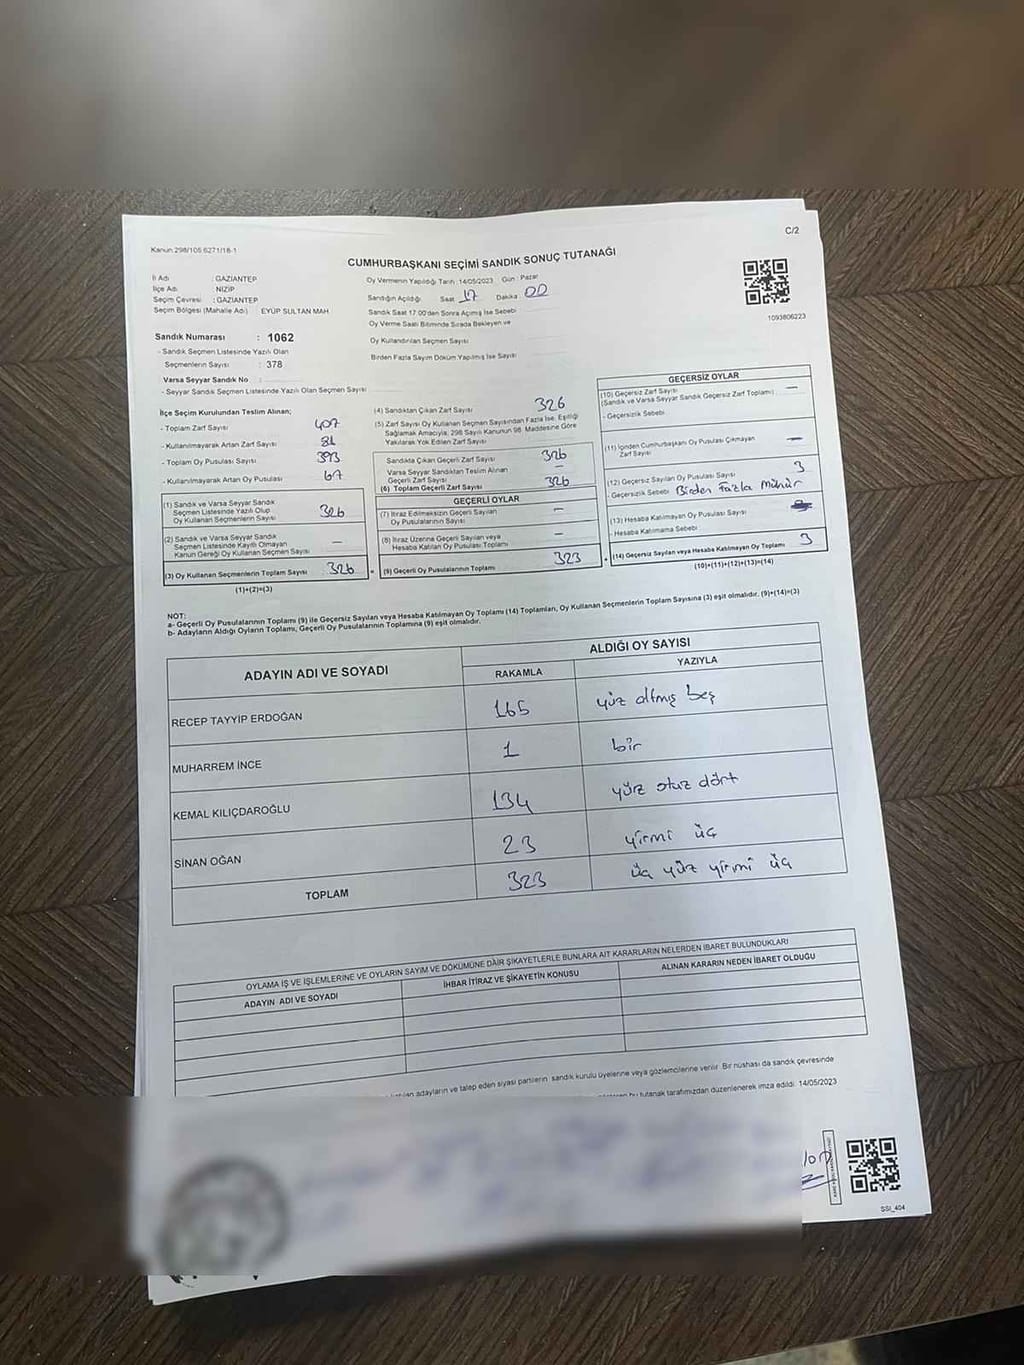 C/2
Kanun 298/105 6271/18-1
CUMHURBAŞKANI SEÇİMİ SANDIK SONUÇ TUTANAĞI
İl Adı : GAZİANTEP
İlçe Adı : NİZİP
Seçim Çevresi : GAZİANTEP
Seçim Bölgesi (Mahalle Adı) EYÜP SULTAN MAH
Oy Vermenin Yapıldığı Tarih : 14/05/2023 Gün : Pazar
Sandığın Açıldığı Saat 17 Dakika 00
Sandık Saat 17.00'den Sonra Açımış İse Sebebi
Oy Verme Saati Bitiminde Sırada Bekleyen ve
Oy Kullandırılan Seçmen Sayısı
Birden Fazla Sayım Döküm Yapılmış İse Sayısı
1093806223
Sandık Numarası : 1062
- Sandık Seçmen Listesinde Yazılı Olan
Seçmenlerin Sayısı : 378
Varsa Seyyar Sandık No :
- Seyyar Sandık Seçmen Listesinde Yazılı Olan Seçmen Sayısı
İlçe Seçim Kurulundan Teslim Alınan;
- Toplam Zarf Sayısı 407
- Kullanılmayarak Artan Zarf Sayısı 81
- Toplam Oy Pusulası Sayısı 393
- Kullanılmayarak Artan Oy Pusulası Sayısı 67
(1) Sandık ve Varsa Seyyar Sandık
Seçmen Listesinde Yazılı Olup
Oy Kullanan Seçmenlerin Sayısı 326
(2) Sandık ve Varsa Seyyar Sandık
Seçmen Listesinde Kayıtlı Olmayan
Kanun Gereği Oy Kullanan Seçmen Sayısı —
(3) Oy Kullanan Seçmenlerin Toplam Sayısı 326
(1)+(2)=(3)
(4) Sandıktan Çıkan Zarf Sayısı 326
(5) Zarf Sayısı Oy Kullanan Seçmen Sayısından Fazla İse, Eşitliği
Sağlamak Amacıyla; 298 Sayılı Kanunun 98. Maddesine Göre
Yakılarak Yok Edilen Zarf Sayısı
Sandıkta Çıkan Geçerli Zarf Sayısı 326
Varsa Seyyar Sandıktan Teslim Alınan
Geçerli Zarf Sayısı —
(6) Toplam Geçerli Zarf Sayısı 326
GEÇERLİ OYLAR
(7) İtiraz Edilmeksizin Geçerli Sayılan
Oy Pusulalarının Sayısı —
(8) İtiraz Üzerine Geçerli Sayılan veya
Hesaba Katılan Oy Pusulası Toplamı —
(9) Geçerli Oy Pusulalarının Toplamı 323
GEÇERSİZ OYLAR
(10) Geçersiz Zarf Sayısı —
(Sandık ve Varsa Seyyar Sandık Geçersiz Zarf Toplamı)
- Geçersizlik Sebebi
(11) İçinden Cumhurbaşkanı Oy Pusulası Çıkmayan
Zarf Sayısı —
(12) Geçersiz Sayılan Oy Pusulası Sayısı 3
- Geçersizlik Sebebi Birden Fazla Mühür
(13) Hesaba Katılmayan Oy Pusulası Sayısı
- Hesaba Katılmama Sebebi
(14) Geçersiz Sayılan veya Hesaba Katılmayan Oy Toplamı 3
(10)+(11)+(12)+(13)=(14)
NOT:
a- Geçerli Oy Pusulalarının Toplamı (9) ile Geçersiz Sayılan veya Hesaba Katılmayan Oy Toplamı (14) Toplamları, Oy Kullanan Seçmenlerin Toplam Sayısına (3) eşit olmalıdır. (9)+(14)=(3)
b- Adayların Aldığı Oyların Toplamı, Geçerli Oy Pusulalarının Toplamına (9) eşit olmalıdır.
ADAYIN ADI VE SOYADI ALDIĞI OY SAYISI
RAKAMLA YAZIYLA
RECEP TAYYİP ERDOĞAN 165 yüz altmış beş
MUHARREM İNCE 1 bir
KEMAL KILIÇDAROĞLU 134 yüz otuz dört
SİNAN OĞAN 23 yirmi üç
TOPLAM 323 üç yüz yirmi üç
OYLAMA İŞ VE İŞLEMLERİNE VE OYLARIN SAYIM VE DÖKÜMÜNE DAİR ŞİKAYETLERLE BUNLARA AİT KARARLARIN NELERDEN İBARET BULUNDUKLARI
ADAYIN ADI VE SOYADI İHBAR İTİRAZ VE ŞİKAYETİN KONUSU ALINAN KARARIN NEDEN İBARET OLDUĞU
adayların ve talep eden siyasi partilerin sandık kurulu üyelerine veya gözlemcilerine verilir. Bir nüshası da sandık çevresinde
bu tutanak tarafımızdan düzenlenerek imza edildi. 14/05/2023
SSI_404